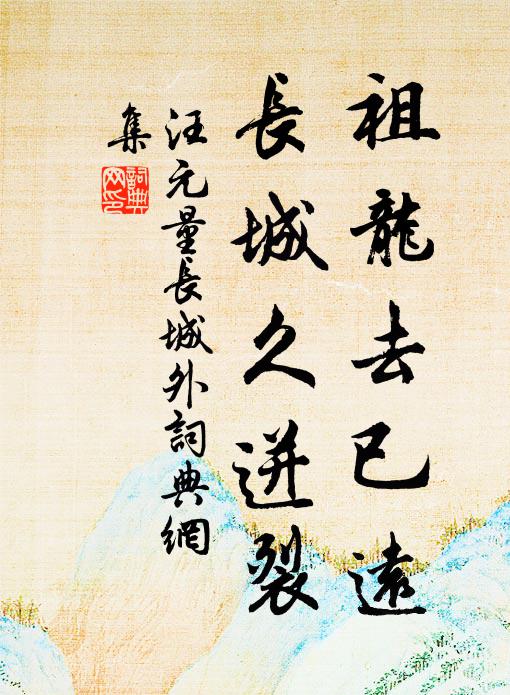 祖龍去已遠
長城久迸裂
汪元量長城外詞典網
集
詞典
网印